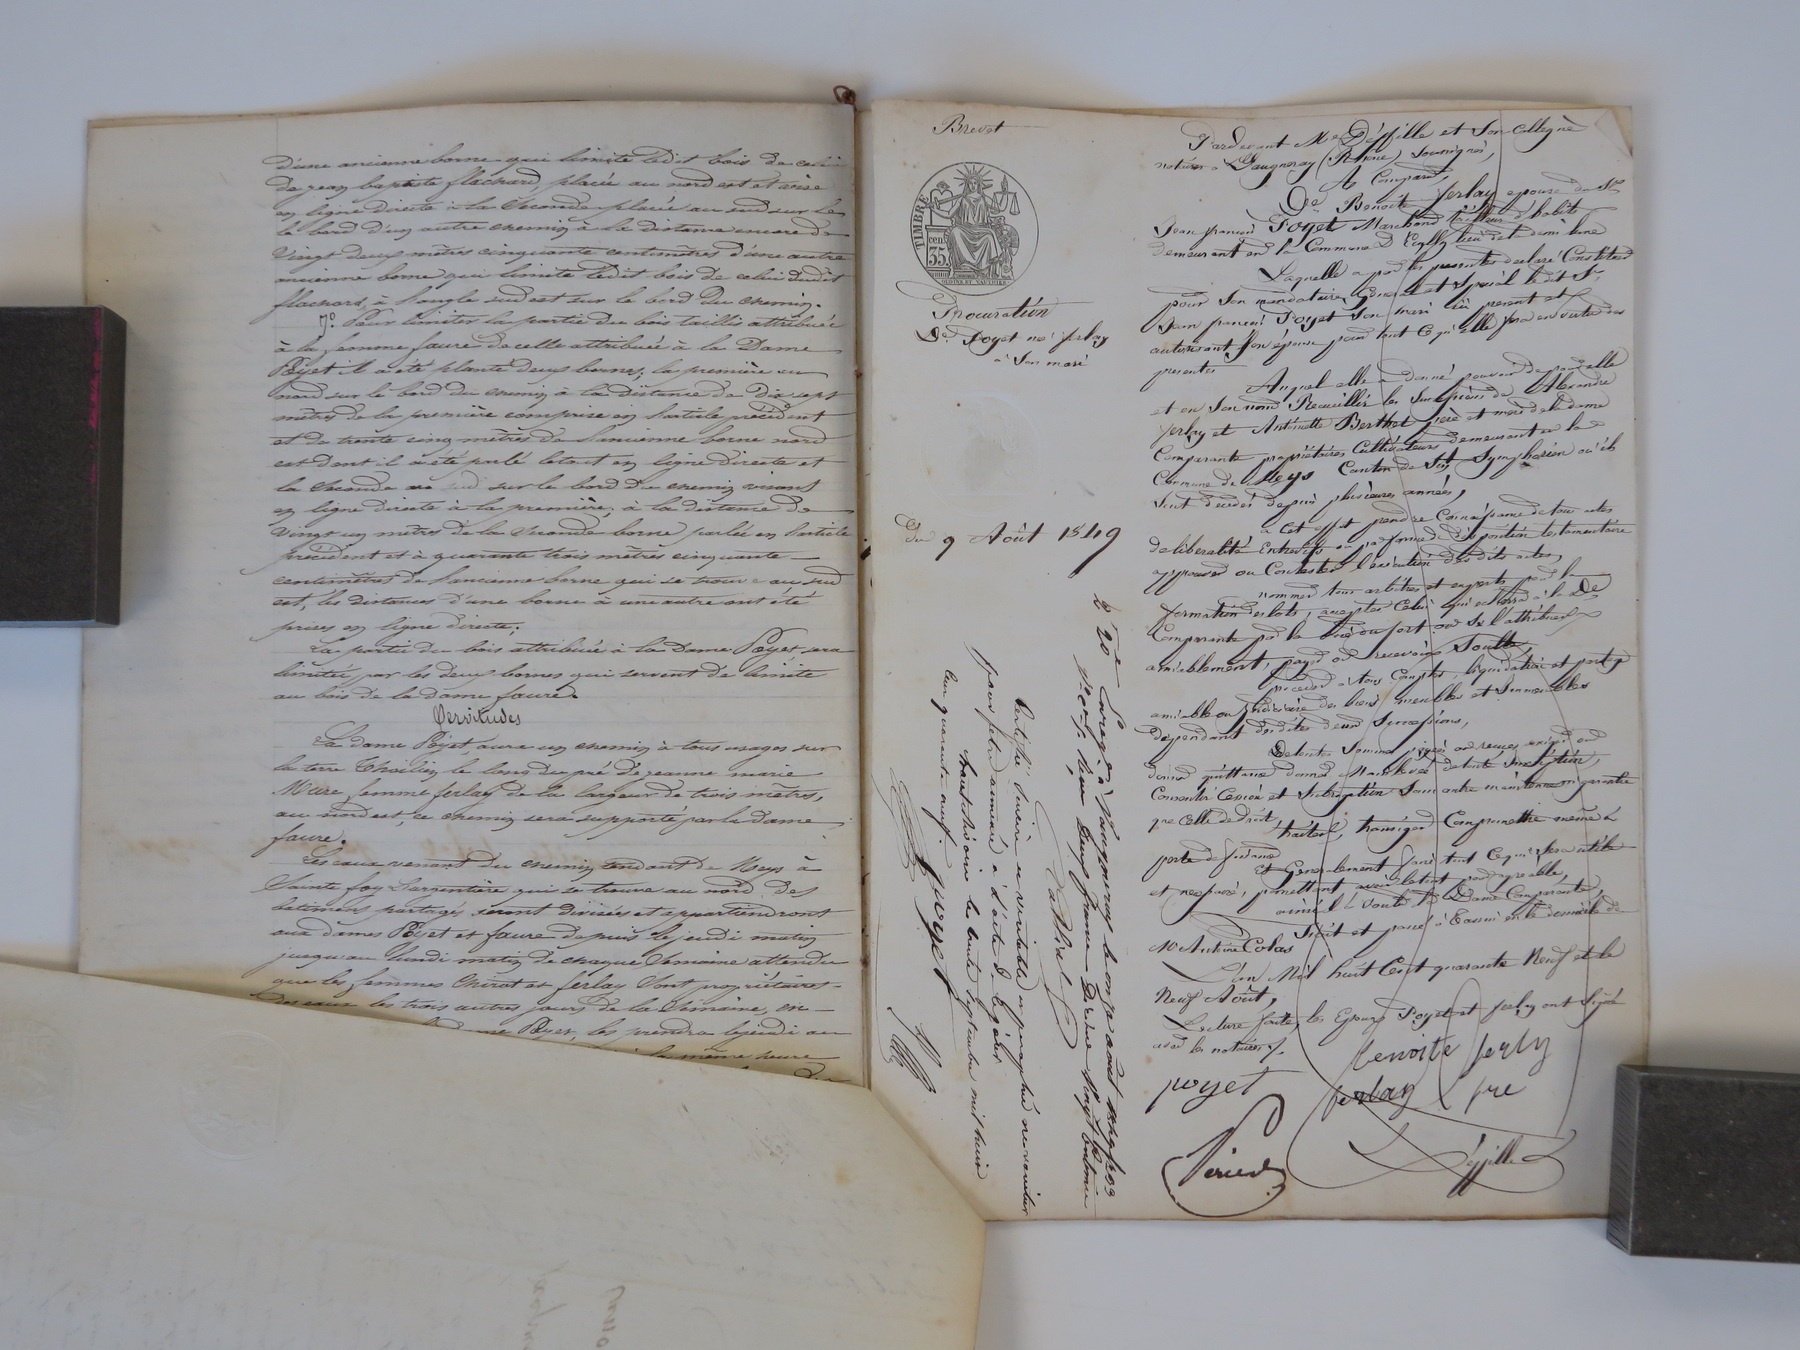 D'une ancienne borne qui limite ledit bois de celui
de jean baptiste flachard, placée au nord est et visé
en ligne directe à la seconde placée au sud sur le
le bord d'un autre chemin à la distance encore de
Vingt deux mètres cinquante centimètres d'une autre
ancienne borne qui limite ledit bois de celui dudit
flachard, à l'angle sud est sur le bord du chemin.
7.° Pour limiter la partie du bois taillis attribuée
à la femme faure de celle attribuée à la Dame
Poyet il a été planté deux bornes, la première au
nord sur le bord du chemin à la distance de Dix sept
mètres de la première comprise en l'article précédent
et de trente cinq mètres de l'ancienne borne nord
est dont il a été parlé letout en ligne directe et
la seconde au sud sur le bord du chemin visant
en ligne directe à la première, à la distance de
Vingt un mètres de la seconde borne parlée en l'article
précédent et à quarante trois mètres cinquante
centimètres de l'ancienne borne qui se trouve au sud
est, les distances d'une borne à une autre ont été
prises en ligne directe;
La partie du bois attribuée à la Dame Poyet sera
limitée par les deux bornes qui servent de limite
au bois de la dame faure.
Servitudes
La dame Poyet, aura un chemin à tous usages sur
la terre le long du pré de jeanne marie
femme ferlay de la largeur de trois mètres,
au nord est, ce chemin sera supporté par la Dame
faure.
Les eaux venant du chemin tendant de Meys à
Sainte foy Largentière qui se trouve au nord des
batimens partagés seront divisées et appartiendront
aux dames Poyet et faure depuis le jeudi matin
jusqu'au lundi matin de chaque semaine attendu
que les femmes et ferlay sont propriétaires
des eaux les trois autres jours de la semaine, en
Poyet, les prendra le jeudi au
la même heure
Brevet
TIMBRE
35.
Procuration
De. Poyet née ferlay
à son mari
Du 9 Août 1849
Pardevant Me Déffille et Son Collègue
notaires à Vaugneray (Rhône) soussignés,
A Comparu,
De. Benoite ferlay epouse du Sr.
Jean françois Poyet Marchand tailleur d'habits
demeurant en la Commune D'Ecully lieu de la demi lune
Laquelle a par les presentes déclaré Constituer
pour Son mandataire général et Spécial ledit Sr.
Jean françois Poyet Son mari ici present et
autorisant Son épouse pour tout ce qu'elle fera en vertu des
presentes
Auquel elle a donné pouvoir de pour elle
et en Son nom Recueillir les Successions de Alexandre
ferlay et Antoinette Berthet père et mere de la dame
Comparante propriétaires Cultivateurs demeurant en la
Commune de Meys Canton de St. Symphorien où ils
Sont decédés depuis plusieurs années,
à cet effet prendre Connaissance de tous actes
de libéralité Entrevifs ou par forme de disposition testamentaire
approuver ou Contester l'exécution desdits actes,
nommer tous arbitres et experts pour la
formation des lots, accepter Celui qui echerra à la De.
Comparante par la voie du sort ou se l'attribuer
amiablement, payer ou recevoir Soulte,
proceder à tous Comptes, liquidation et partage
amiable ou judiciaire des biens meubles et immeubles
dépendant desdites deux Successions,
De toutes Sommes payées ou reçues exiger ou
donner quittance donner Mainlevée de toute inscription,
Consentir Cession et Subrogation Sans autre maintenue ni garantie
que Celle de droit,
traiter, transiger Compromettre même à
porte de justice
et Generalement faire tout ce qui sera utile
et necessaire, promettant avoir le tout pour agreable,
ainsi l'a voulu la Dame Comparante,
Fait et passé à en le domicile de
Mr Antoine Colas
L'an Mil huit Cent quarante Neuf et le
Neuf Août,
Lecture faite, les Epoux Poyet et ferlay ont Signé
avec les notaires.
benoite ferly
poyet ferlay fre
Périer Déffille
Enregé à Vaugneray le onze août 1849 fo 93
Ro. 20 reçu deux francs Decime vingt centimes
Certifié sincère et véritable et paraphé ne varietur
pour être annexé à l'acte de
le trente septembre mil huit
cent quarante neuf.
poyet